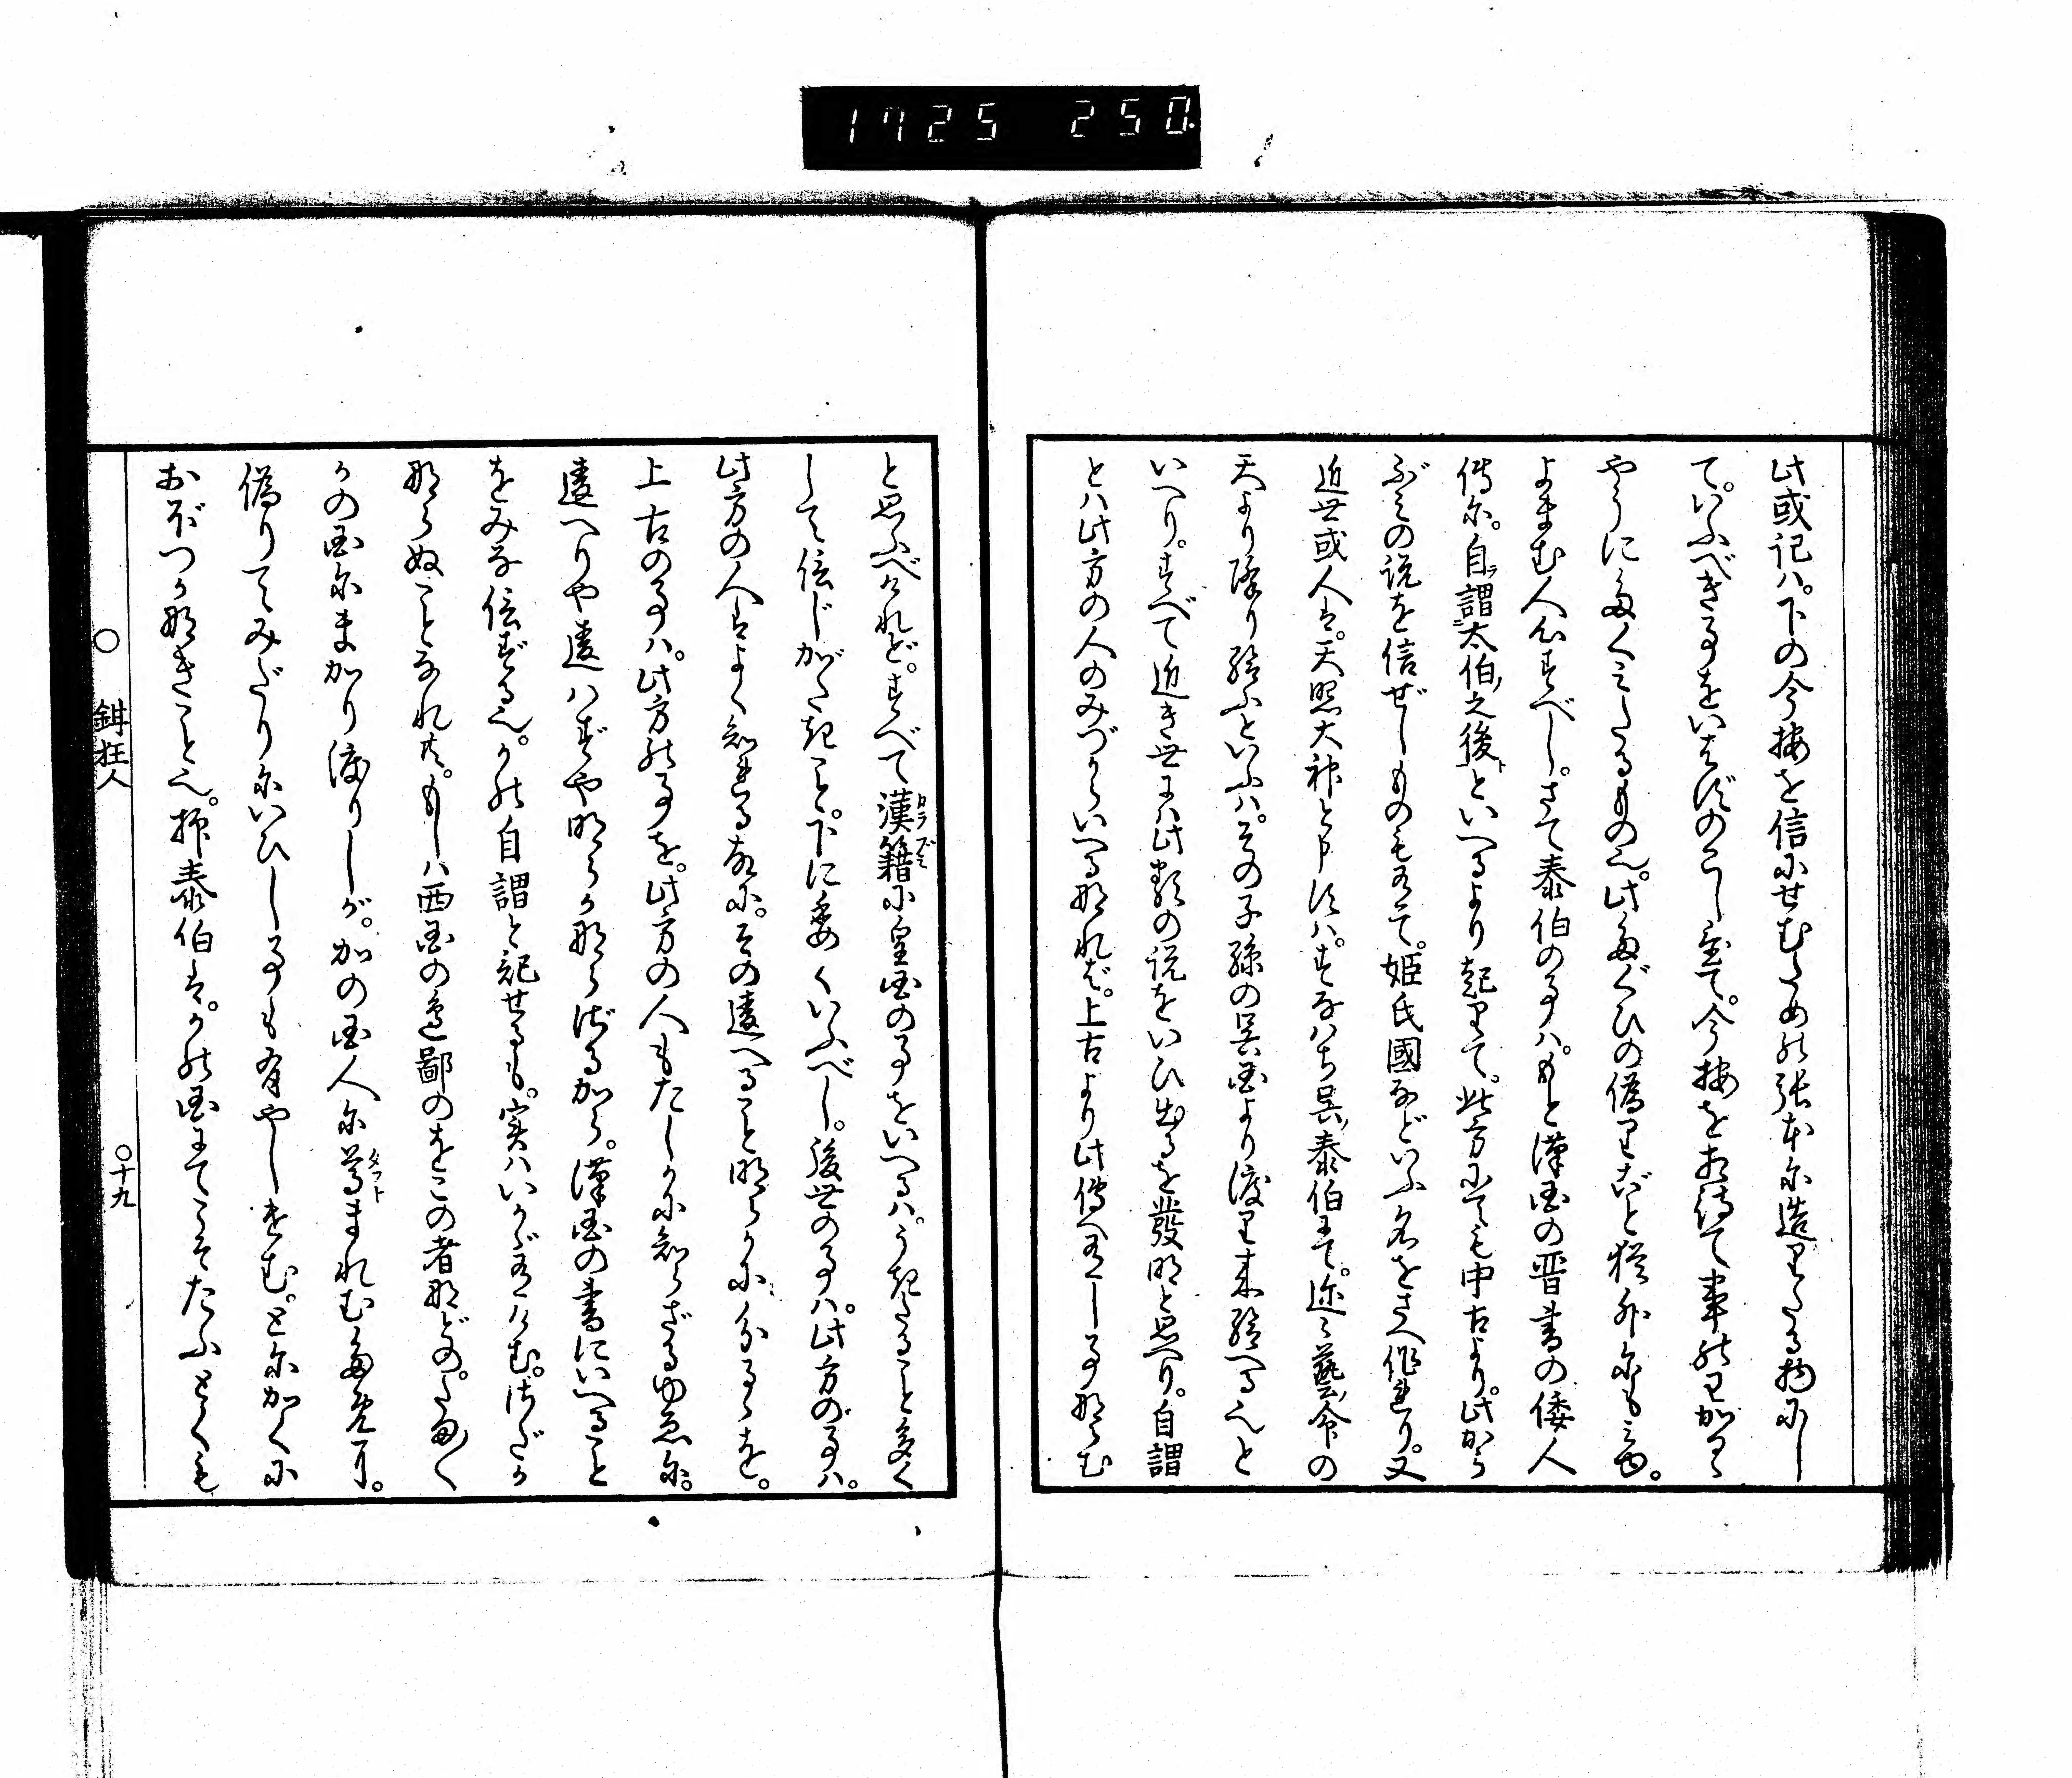 1725 250
此或記ハ。下の今按を信にせむための張本に造りたる物にし
て。いふべき事をいはずのこし置て。今按をあ待て事のわかる
やうに多くしたるもの也。此たぐひの偽りごと猶外にも見ゆ。
よまむ人心すべし。さて泰伯の事ハ。もと漢国の晋書の倭人
傳に。自謂太伯之後といへるより起りて。此方にても中古より。此から
ぶみの説を信ぜしもの有て。姫氏國などいふ名をさへ作れり。又
近世或人は。天照大神と申すハ。すなハち呉泰伯にて。迩々藝命の
天より降り給ふといふハ。その子孫の呉国より渡り来給へる也と
いへり。すべて近き世にハ此類の説をいひ出るを發明と思へり。自謂
とハ此方の人のみづからいへるなれば。上古より此傳へ有し事ならむ
と思ふべけれど。すべて漢籍に皇国の事をいへるハ。うきたること多く
して信じがたきこと。下に委くいふべし。後世の事ハ。此方の事ハ。
此方の人はよく知れる故に。その違へること明らかに分るゝを。
上古の事ハ。此方の事を。此方の人もたしかに知らざるゆゑに。
違へりや違ハずや明らかならざるから。漢国の書にいへること
をみな信ずる也。かの自謂と記せるも。実ハいかゞ有けむ。さだか
ならぬことなれ共。もしハ西国の邊鄙のをこの者などの。たまゝゝ
かの国にまかり渡りしが。かの国人に尊まれむために。
偽りてみだりにいひし事も有やしけむ。とにかくに
おぼつかなきこと也。抑泰伯は。かの国にてこそたふとくも
○ 鉗狂人
○十九